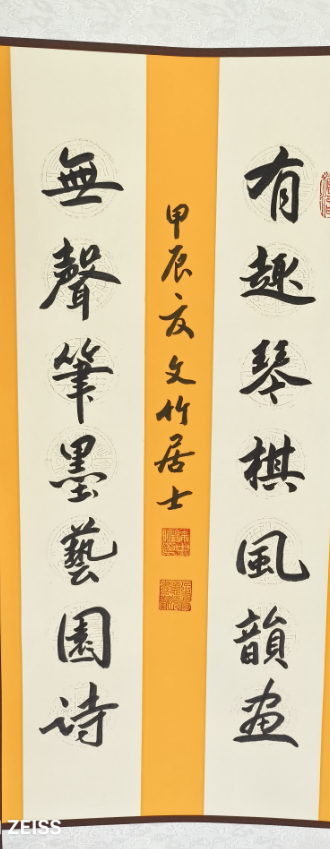 有趣琴棋風韻畫
無聲筆墨藝園詩
甲辰夏文竹居士
ZEISS